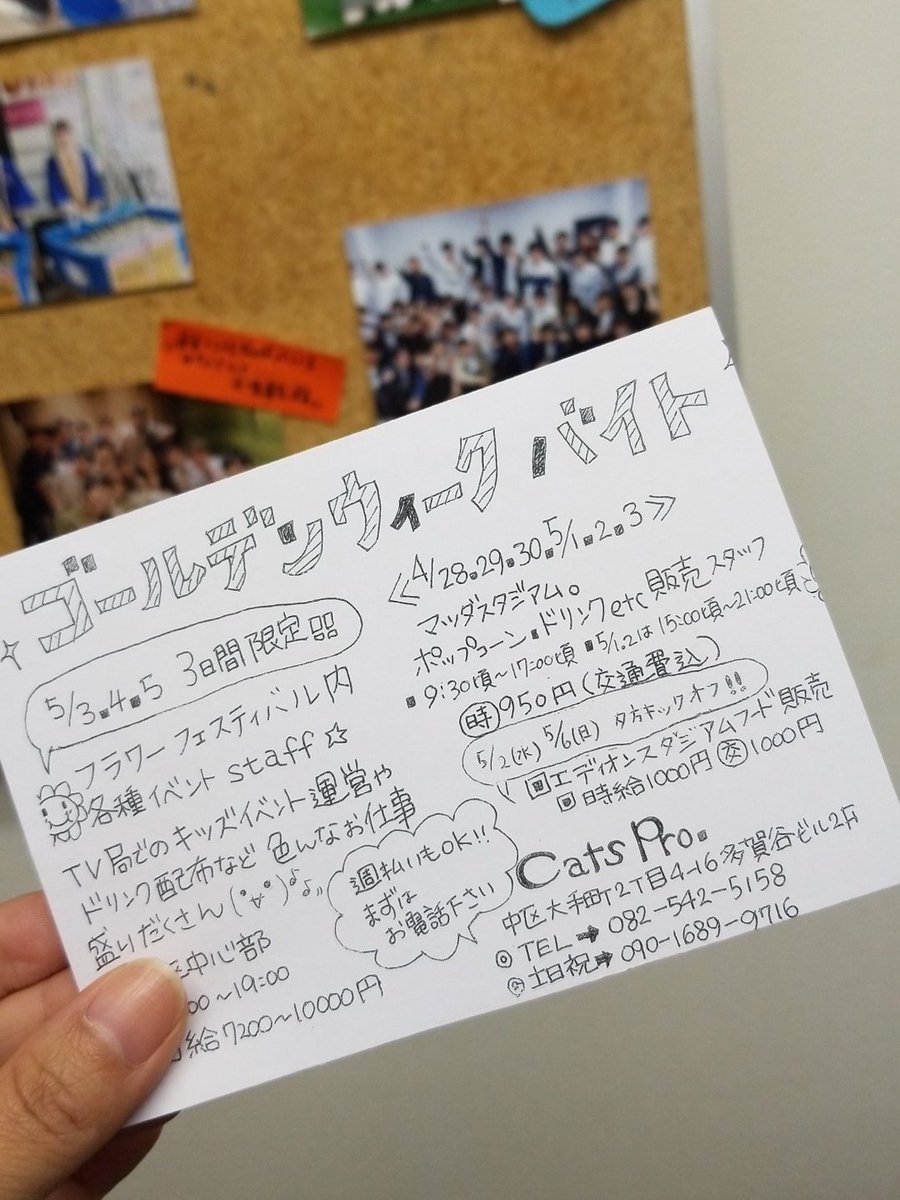 ゴールデンウィークバイト
5/3.4.5 3日間限定
フラワーフェスティバル内
各種イベントstaff☆
TV局でのキッズイベント運営や
ドリンク配布など色んなお仕事
盛りだくさん
中心部
00～19:00
給7200～10000円
≪4/28.29.30.5/1.2.3≫
マツダスタジアム。
ポップコーン・ドリンクetc販売スタッフ
■9:30頃～17:00頃 ■5/1.2は15:00頃～21:00頃
時950円(交通費込)
5/2(水) 5/6(日) 夕方キックオフ!!
エディオンスタジアムフード販売
時給1000円 交1000円
週払いもOK!!
まずは
お電話下さい
Cats Pro.
中区大手町2丁目4-16多賀谷ビル2F
◎TEL➡082-542-5158
◎土日祝➡090-1689-9716